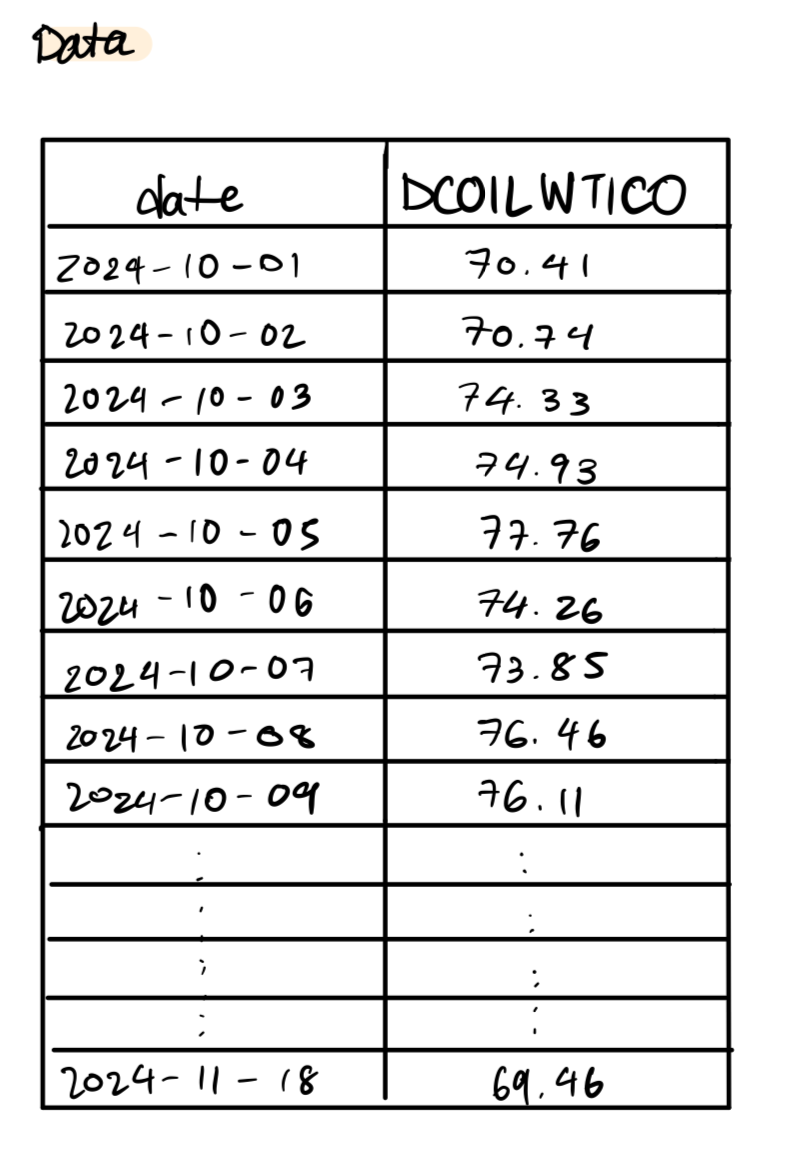 Data
date DCOILWTICO
2024-10-01 70.41
2024-10-02 70.74
2024-10-03 74.33
2024-10-04 74.93
2024-10-05 77.76
2024-10-06 74.26
2024-10-07 73.85
2024-10-08 76.46
2024-10-09 76.11
2024-11-18 69.46